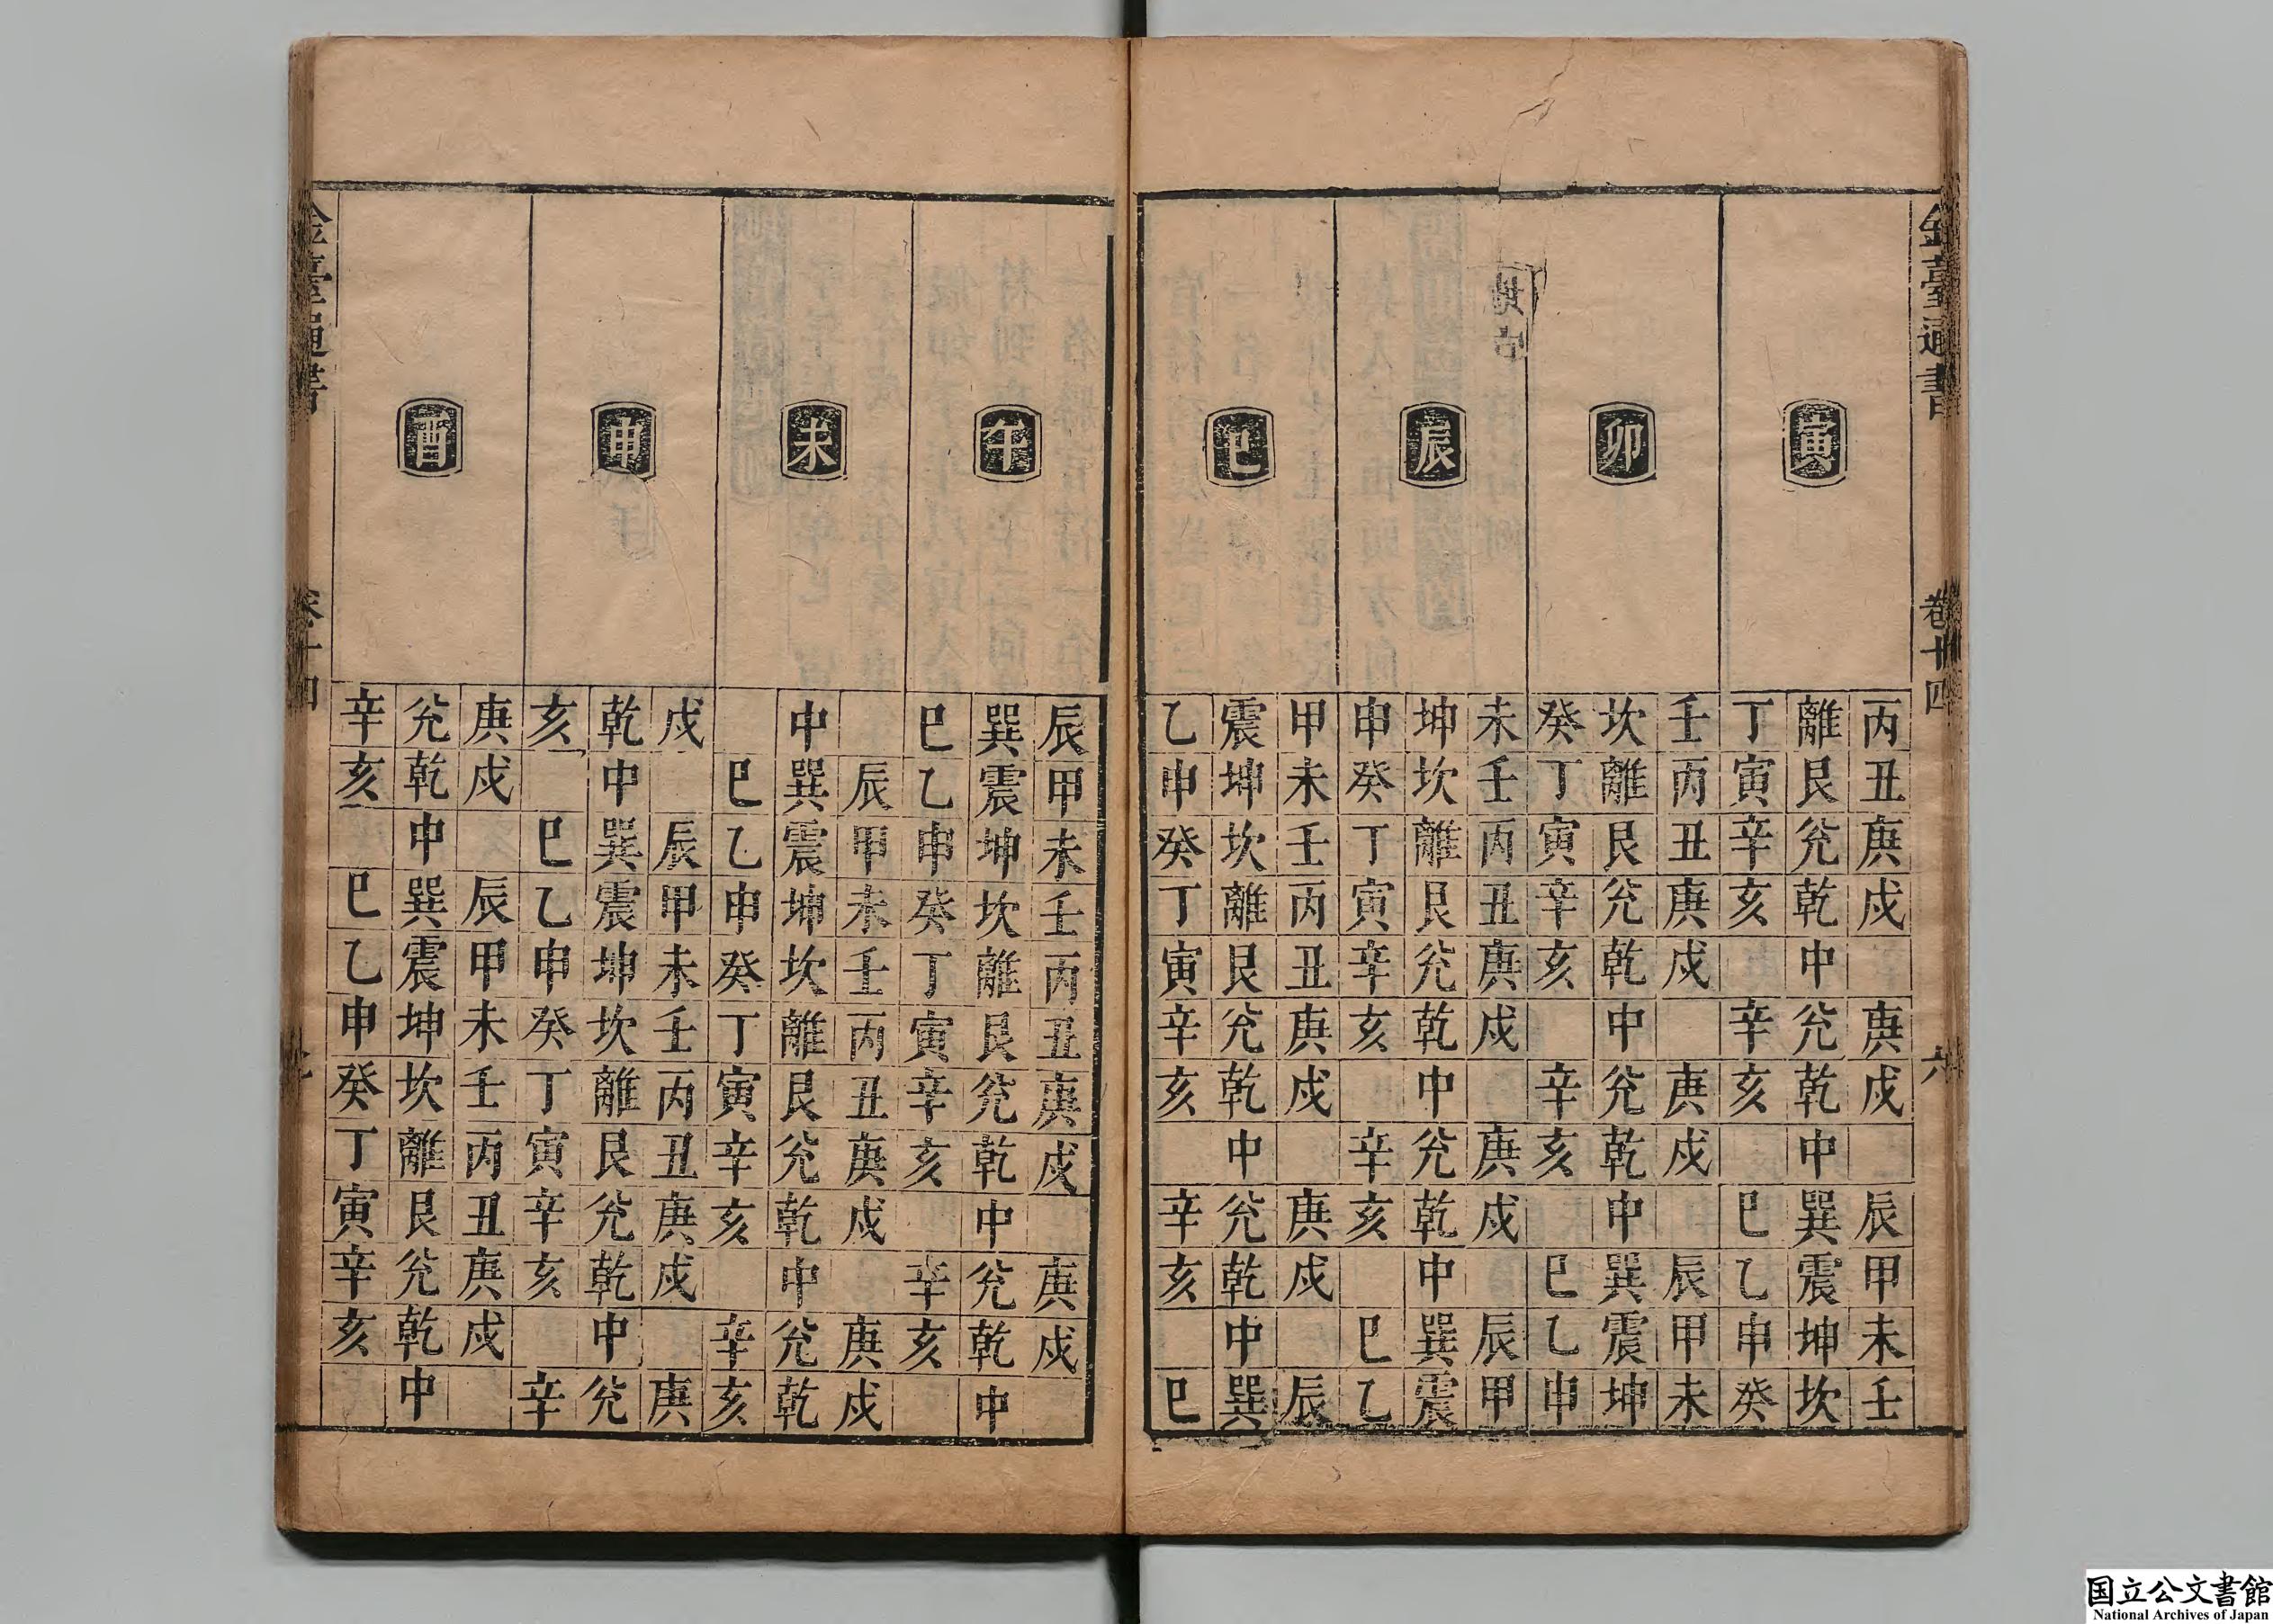 金臺通書 卷十四 六
寅
丙丑庚戌 庚戌 辰甲未壬
離艮兊乾中兊乾中巽震坤坎
丁寅辛亥 辛亥 巳乙申癸
卯
壬丙丑庚戌 庚戌 辰甲未
坎離艮兊乾中兊乾中巽震坤
癸丁寅辛亥 辛亥 巳乙申
辰
未壬丙丑庚戌 庚戌 辰甲
坤坎離艮兊乾中兊乾中巽震
申癸丁寅辛亥 辛亥 巳乙
巳
甲未壬丙丑庚戌 庚戌 辰
震坤坎離艮兊乾中兊乾中巽
乙申癸丁寅辛亥 辛亥 巳
午
辰甲未壬丙丑庚戌 庚戌
巽震坤坎離艮兊乾中兊乾中
巳乙申癸丁寅辛亥 辛亥
未
辰甲未壬丙丑庚戌 庚戌
中巽震坤坎離艮兊乾中兊乾
巳乙申癸丁寅辛亥 辛亥
申
戌 辰甲未壬丙丑庚戌 庚
乾中巽震坤坎離艮兊乾中兊
亥 巳乙申癸丁寅辛亥 辛
酉
庚戌 辰甲未壬丙丑庚戌
兊乾中巽震坤坎離艮兊乾中
辛亥 巳乙申癸丁寅辛亥
金臺通書 卷十四
国立公文書館
National Archives of Japan